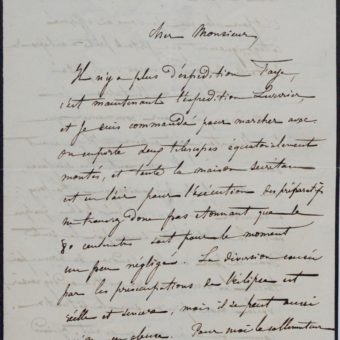 Cher Monsieur
Il n'y a plus d'expédition Faye,
c'est maintenant l'expédition Leverrier,
et je suis commandé pour marcher avec
on emporte deux télescopes équatorialement
montés, et toute la maison Secretan
est en l'air pour l'exécution des préparatifs
ne trouvez donc pas étonnant que le
80 soit pour le moment
un peu négligé. La diversion causée
par les préoccupations de l'éclipse est
réelle et sincère, mais il se peut aussi
Pour moi le collimateur